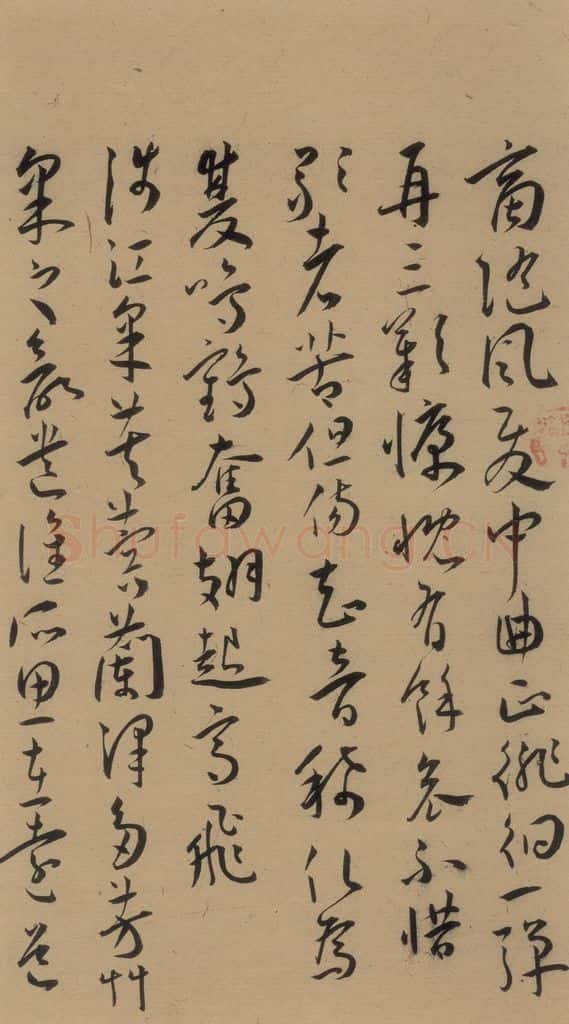 商隨風發中曲正徘徊一彈
再三歎慷慨有餘哀不惜
歌者苦但傷知音稀化為
雙鳴鶴奮翅起高飛
涉江采芙蓉蘭澤多芳艸
采之欲遺誰所思在遠道
Shufawang.CN